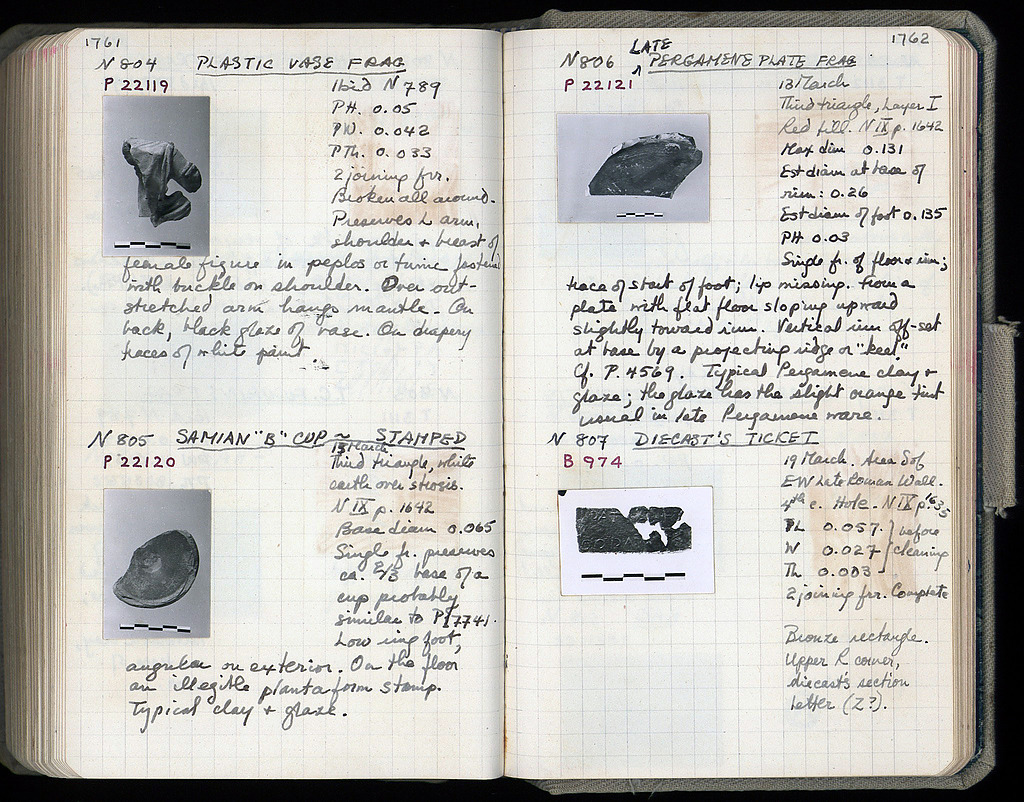 1761
N 804 PLASTIC VASE FRAG
P 22119
Ibid N 789
PH. 0.05
PW. 0.042
PTh. 0.033
2 joining frr.
Broken all around.
Preserves L arm,
shoulder + breast of
female figure in peplos or tunic fastened
with buckle on shoulder. Over out-
stretched arm hangs mantle. On
back, black glaze of vase. On drapery
traces of white paint.
N 805 SAMIAN "B" CUP ~ STAMPED
P 22120
13 March
Third triangle, white
earth over strosis.
N IX p. 1642
Base diam 0.065
Single fr. preserves
ca. 2/3 base of a
cup probably
similar to P 17741.
Low ring foot,
angular on exterior. On the floor
an illegible planta form stamp.
Typical clay + glaze.
1762
N 806 LATE PERGAMENE PLATE FRAG
P 22121
13 March
Third triangle, Layer I
Red fill. N IX p. 1642
Max dim 0.131
Est diam at base of
rim: 0.26
Est diam of foot 0.135
PH 0.03
Single fr. of floor + rim;
trace of start of foot; lip missing. From a
plate with flat floor sloping upward
slightly toward rim. Vertical rim off-set
at base by a projecting ridge or "keel."
Cf. P. 4569. Typical Pergamene clay +
glaze; the glaze has the slight orange tint
usual in late Pergamene ware.
N 807 DIECAST'S TICKET
B 974
19 March. Area S of
EW Late Roman Wall.
4th c. Hole. N IX p. 1635
PL 0.057 } before
W 0.027 } cleaning
Th 0.003
2 joining frr. Complete
Bronze rectangle.
Upper R corner,
diecast's section
letter (Z?).